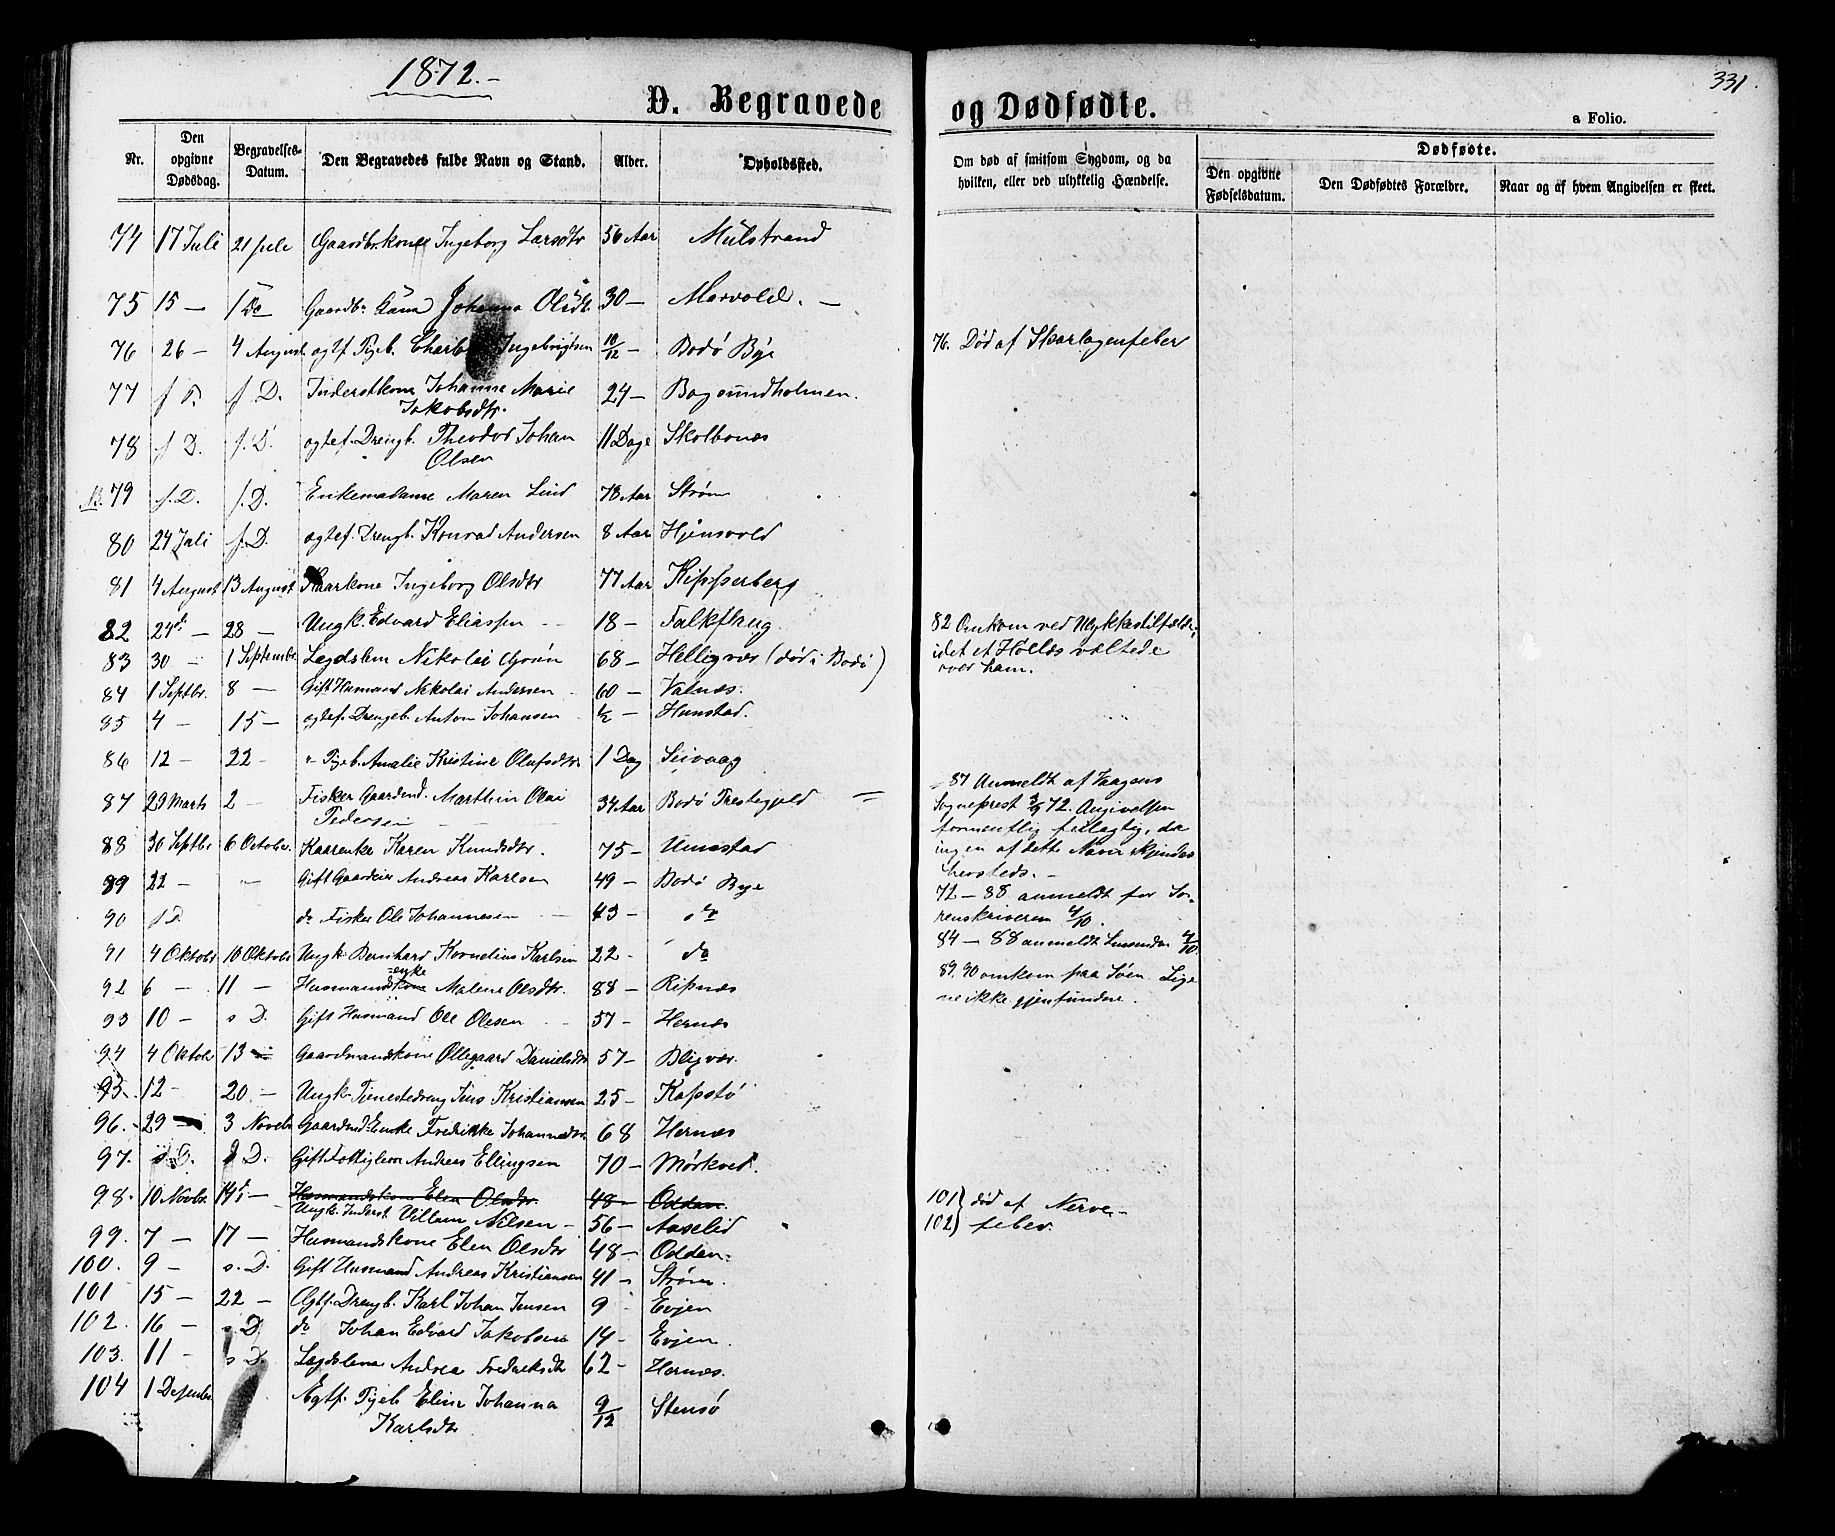 1872.-
331.
D. Begravede og Dødfødte.
a Folio.
Nr.
Den opgivne Dødsdag.
Begravelses-Datum.
Den Begravedes fulde Navn og Stand.
Alder.
Opholdssted.
Om død af smitsom Sygdom, og da hvilken, eller ved ulykkelig Hændelse.
Dødfødte.
Den opgivne Fødselsdatum.
Den Dødfødtes Forældre.
Naar og af hvem Angivelsen er skeet.
74 17 Juli 21 Juli Gaardbr.kone Ingeborg Larsdtr 56 Aar Mulstrand
75 15 — Do Gaardbr. Johanna Olsdtr 30 — Morvold. —
76 26 — 4 August ogtf Pigeb. Ingebrigtsen 10/12 — Bodø Bye
77 f D. f. D. Inderstkone Johanne Marie Jakobsdtr. 24 — Bagsundholmen.
78 f D. f. D. ogtef. Drengb. Theodor Johan Olsen 11 Dage Skolbones
79 f. D. f. D. Enkemadame Maren Lind 78 Aar Strøm
80 24 Juli f. D. ogtef. Drengb. Konrad Andersen 8 Aar Hjensvold
81 4 August 13 August Kaarkone Ingeborg Olsdtr 77 Aar Kipsserberg
82 24de — 28 — Ungk. Edvard Eliassen 18 — Falkflaug
83 30 — 1 Septembr. Legdslem Nikolai Grøn 68 — Helligvær (død i Bodø)
84 1 Septbr. 8 — Gift Husmand Nikolai Andersen 60 — Vatnæs.
85 4 — 15 — ogtef. Drengeb. Anton Johansen ½ — Hunstad.
86 12 — 22 — " Pigeb. Amalie Kristine Olufsdtr 1 Dag Seivaag
87 29 Marts 2 — Fisker Gaardmd. Marthin Olai Pedersen 34 Aar Bodø Prestegjeld
88 30 Septbr 6 October. Kaarenke Karen Knudsdtr. 75 — Unnstad
89 22 — " Gift Gaardeier Andreas Karlsen 49 — Bodø Bye
90 f D. do Fisker Ole Johannesen 43 — do
91 4 Oktobr 10 Oktobr Ungk. Bernhard Kornelius Karlsen 22 — do
92 6 — 11 — Husmandsenke Malene Olsdtr. 88 — Ripnæs
93 10 — s D. Gift Husmand Ole Olesen 57 — Hernæs
94 4 Oktobr 13 — Gaardmandskone Ollegaard Danielsdtr 57 — Bligvær.
95 12 — 20 — Ungk. Tjenestedreng Jens Kristiansen 25 — Kapstø
96. 29 3 Novebr Gaardmd-Enke Fredrikke Johannesdtr 68 Hernæs
97. s D. s D. Gift Andreas Ellingsen 70 — Mørkved.
98. 10 Novbr. 14de — Husmandskone Elen Olsdtr. 48 — Oddan.
Ungk. Inderst Villum Nilsen — 56 — Aaselid
99. 7 — 17 — Husmandskone Elen Olsdtr 48 — Oddan.
100. 9 — s. D. Gift Husmand Andreas Kristiansen 41 — Strøm.
101 15 — 22 — Ogtf. Drengb. Karl Johan Jensen 9 Evjen
102. 16 — s D do Johan Edvard Jakobsen 14 — Evjen.
103. 11 — s D. Legdslem Andrea Frederiksdtr 62 — Hernæs.
104 1 Desember Egtf. Pigeb Eline Johanna Karlsdtr 9/12 Stensø
76. Død af Skarlagenfeber
82 Omkom ved Ulykkestilfælde,
idet et Hølæs væltede
over ham.
87 Anmeldt af Vaagens
Sogneprest 2/9 72. Angivelsen
formentlig feilagtig, da
ingen af dette Navn kjendes
hersteds. -
72 — 88 anmeldt for So-
renskriveren 4/10.
84 — 88 anmeldt Lensmdn 4/10.
89. 90 omkom paa Søen. Lige
ne ikke gjenfundne.
101 } død af Nerve-
102 } feber.